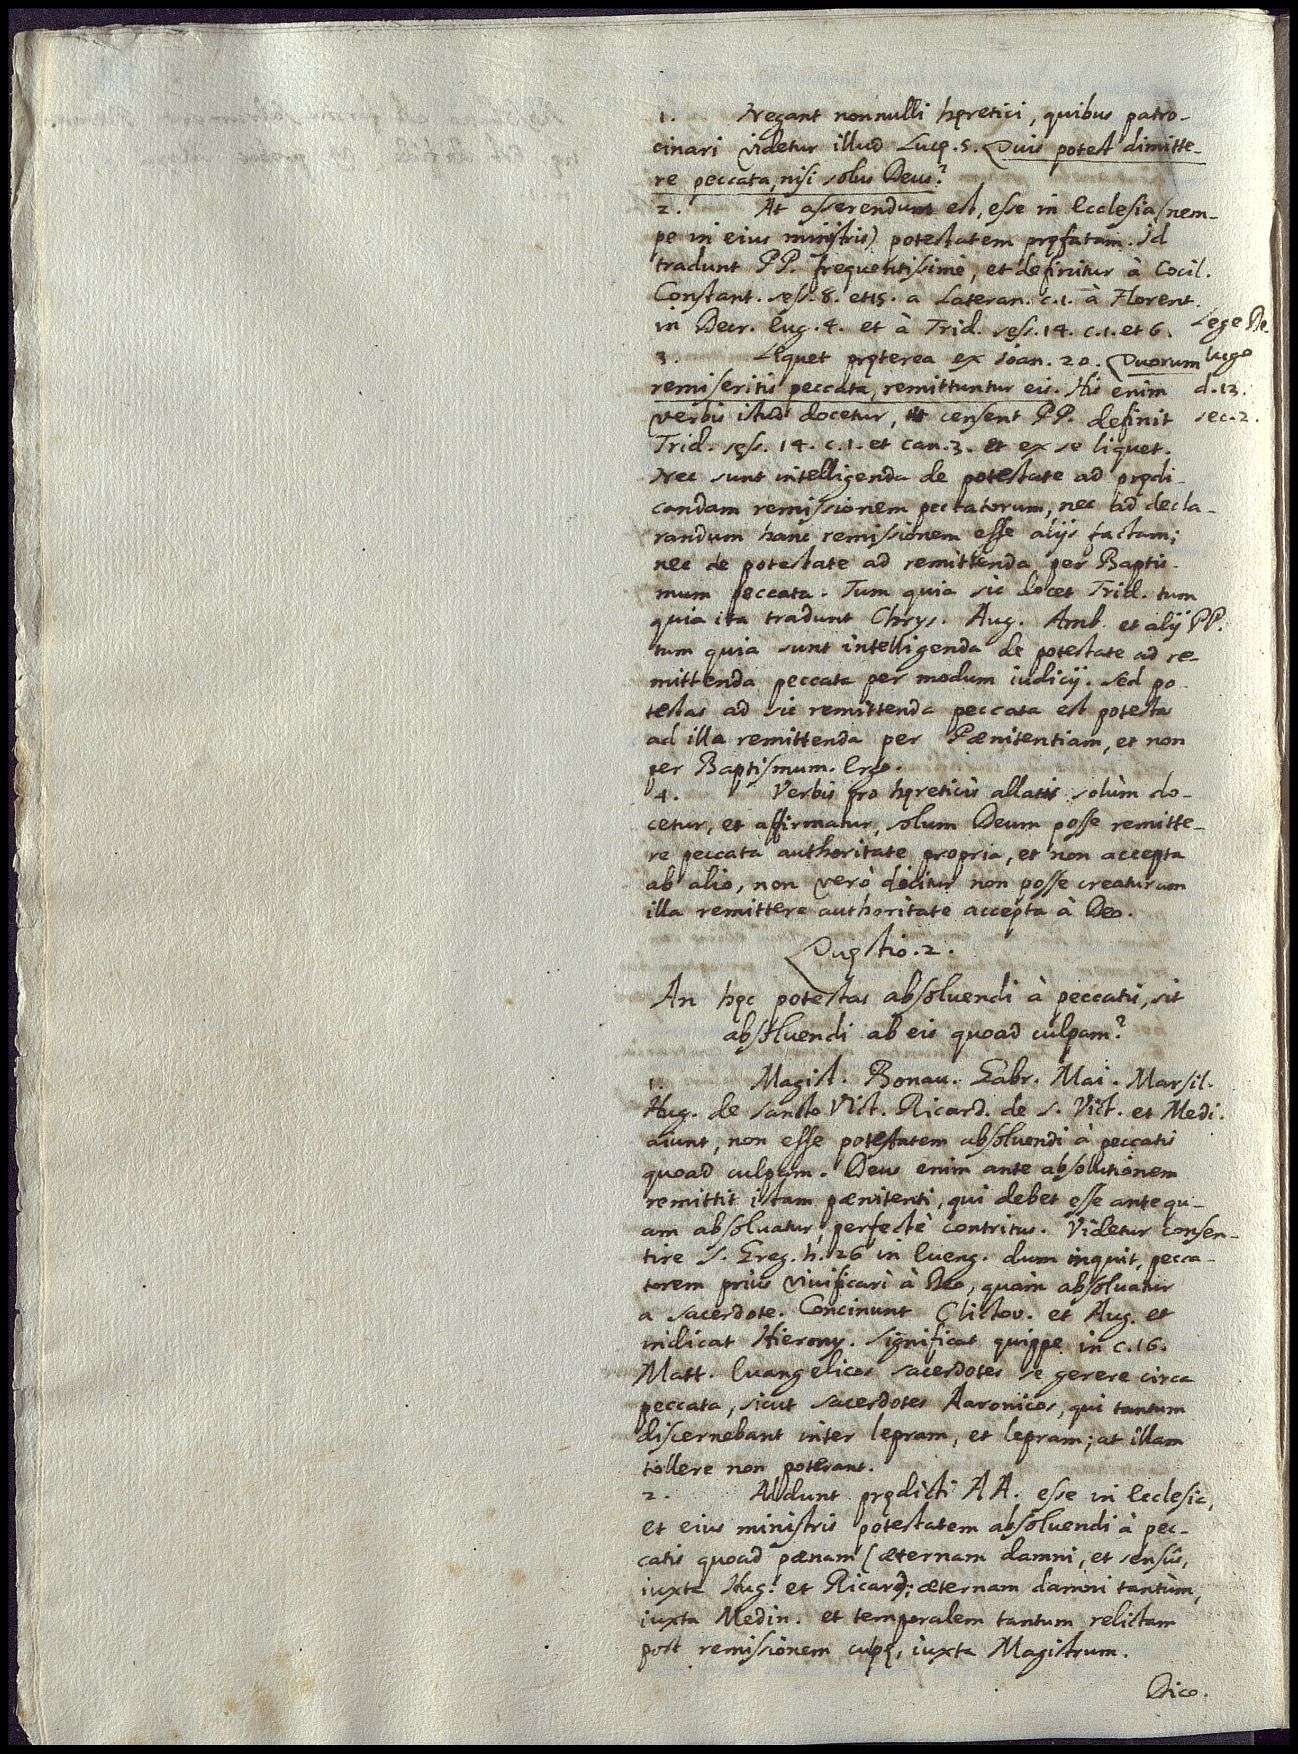 1. Negant nonnulli hęretici, quibus patro-
cinari videtur illud Lucę. 5. Quis potest dimitte-
re peccata, nisi solus Deus?
2. At asserendum est, esse in Ecclesia (nem-
pe in eius ministris) potestatem pręfatam. Id
tradunt PP. frequentissimè, et definitur à Cocil.
Constant. sess. 8. et 15. a Lateran. c. 1. à Florent.
in Decr. Eug. 4. et à Trid. sess. 14. c. 1. et 6.
3. Liquet pręterea ex Ioan. 20. Quorum
remiseritis peccata, remittuntur eis. His enim
verbis istud docetur, ut censent PP. definit
Trid. sess. 14. c. 1. et can. 3. et ex se liquet.
Nec sunt intelligenda de potestate ad prędi-
candam remissionem peccatorum, nec ad decla-
randum hanc remissionem esse alijs factam;
nec de potestate ad remittenda per Baptis-
mum peccata. Tum quia sic docet Trid. tum
quia ita tradunt Chrys. Aug. Amb. et alij PP.
tum quia sunt intelligenda de potestate ad re-
mittenda peccata per modum iudicij. Sed po-
testas ad sic remittenda peccata est potestas
ad illa remittenda per Pænitentiam, et non
per Baptismum. Ergo.
4. Verbis pro hęreticis allatis solùm do-
cetur, et affirmatur, solum Deum posse remitte-
re peccata authoritate propria, et non accepta
ab alio, non verò dicitur non posse creaturam
illa remittere authoritate accepta à Deo.
Lege De
Lugo
d. 13.
sec. 2.
Quęstio. 2.
An hęc potestas absoluendi à peccatis, sit
absoluendi ab eis quoad culpam?
1. Magist. Bonau. Gabr. Mai. Marsil.
Hug. de sancto Vict. Ricard. de S. Vict. et Medi.
aiunt, non esse potestatem absoluendi à peccatis
quoad culpam. Deus enim ante absolutionem
remittit istam pænitenti, qui debet esse antequ-
am absoluatur, perfectè contritus. Videtur consen-
tire S. Greg. h. 26 in Euang. dum inquit, pecca-
torem prius viuificari à Deo, quàm absoluatur
a sacerdote. Concinunt Clictou. et Aug. et
indicat Hierony. significat quippe in c. 16.
Matt. Euangelicos sacerdotes se gerere circa
peccata, sicut sacerdotes Aaronicos, qui tantum
discernebant inter lepram, et lepram; at illam
tollere non poterant.
2. Addunt prędicti AA. esse in Ecclesia,
et eius ministris potestatem absoluendi à pec-
catis quoad pænam (æternam damni, et sensûs,
iuxta Hug. et Ricard; æternam damni tantùm,
iuxta Medin. et temporalem tantum relictam
post remissionem culpę, iuxta Magistrum.
Dico.